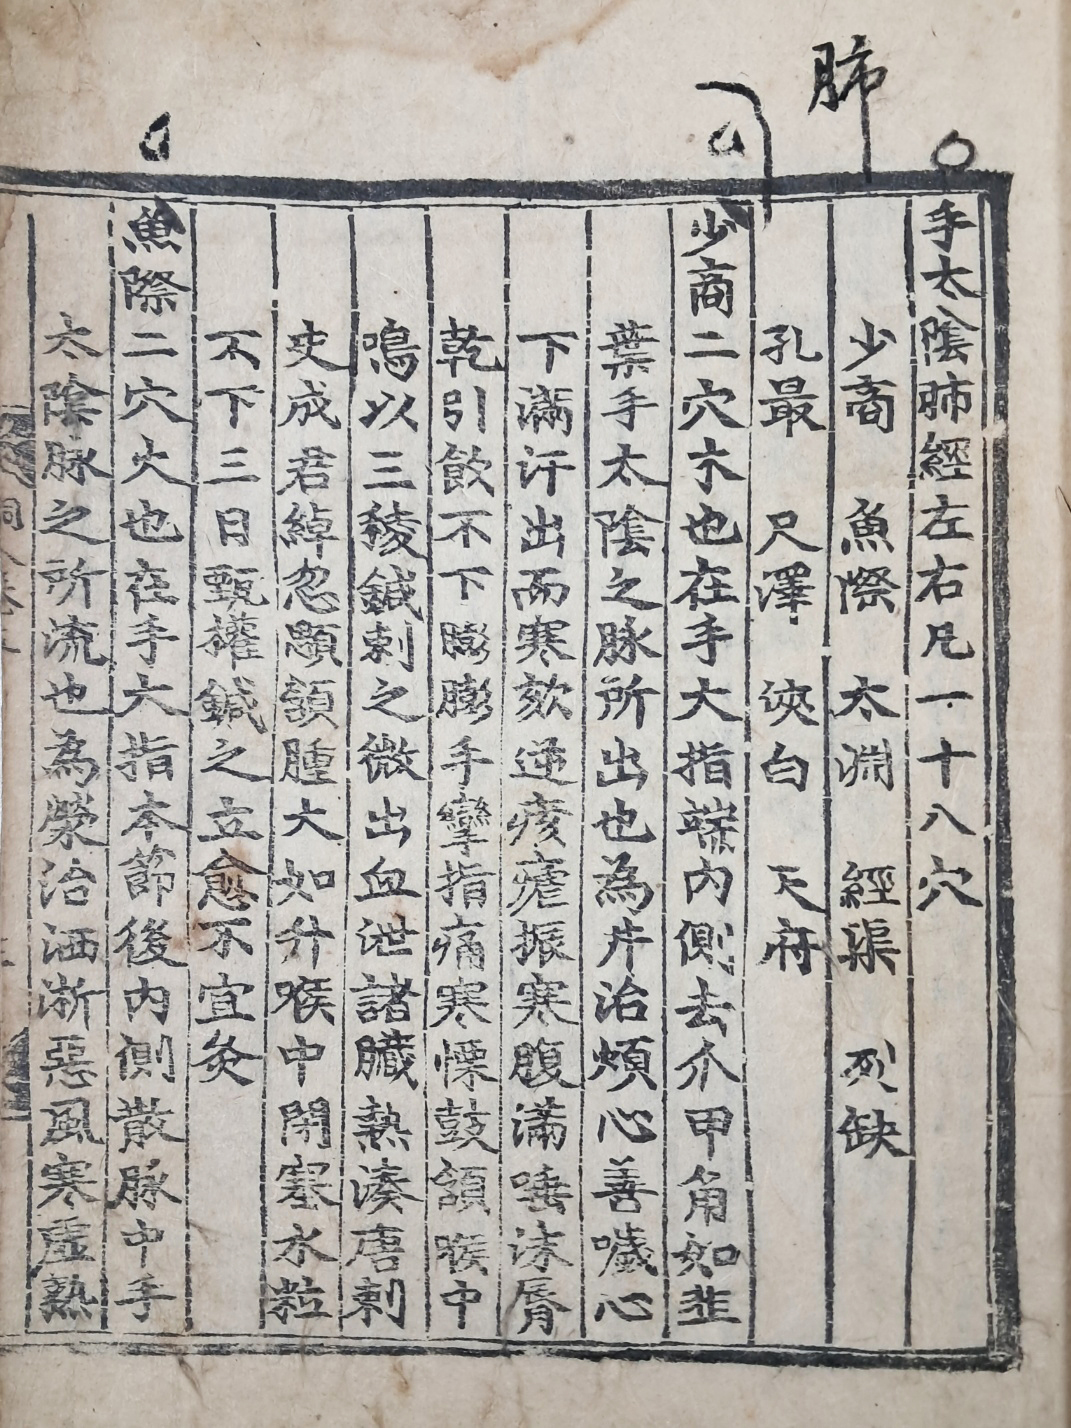 肺
手太陰肺經左右凡一十八穴
少商 魚際 太淵 經渠 列缺
孔最 尺澤 俠白 天府
少商二穴木也在手大指端內側去介甲角如韭
葉手太陰之脉所出也為井治煩心善噦心
下滿汗出而寒欬逆痎瘧振寒腹滿唾沫脣
乾引飲不下膨膨手攣指痛寒慄鼓頷喉中
鳴以三稜鍼刺之微出血泄諸臟熱湊唐刺
史成君綽忽顋頷腫大如升喉中閉塞水粒
不下三日甄權鍼之立愈不宜灸
魚際二穴火也在手大指本節後內側散脉中手
太陰脉之所流也為滎治洒淅惡風寒虛熱